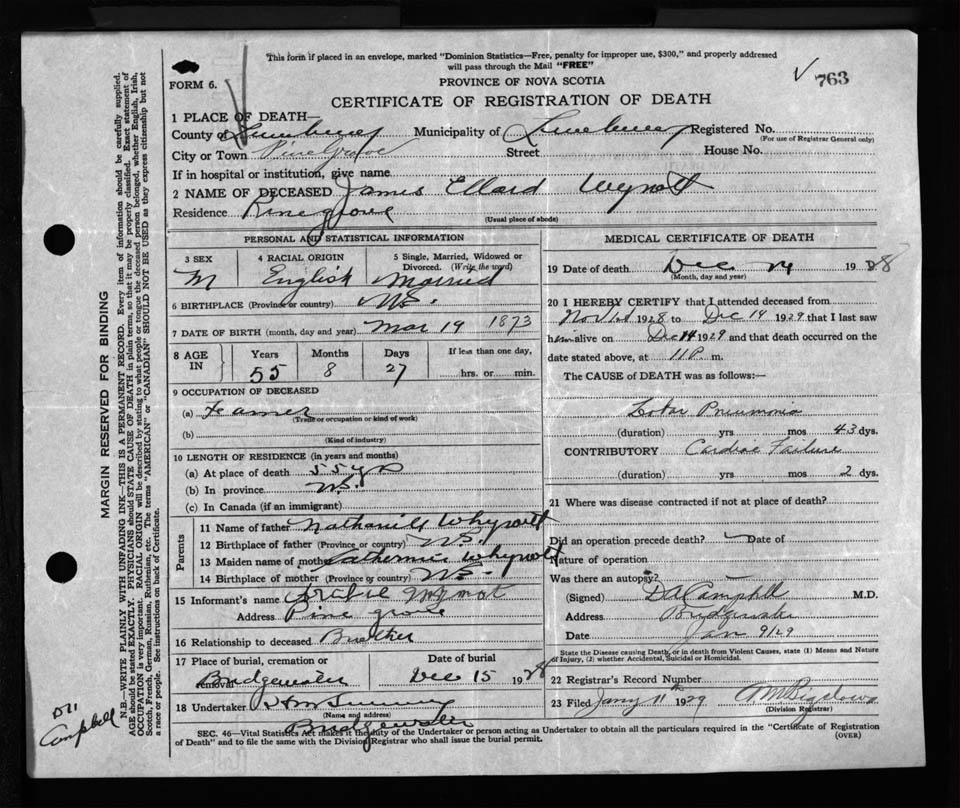 This form if placed in an envelope, marked "Dominion Statistics—Free, penalty for improper use, $300," and properly addressed
will pass through the Mail "FREE"
FORM 6.
PROVINCE OF NOVA SCOTIA
763
CERTIFICATE OF REGISTRATION OF DEATH
1 PLACE OF DEATH—
County of Lunenburg Municipality of Lunenburg Registered No.
(For use of Registrar General only)
City or Town Pine Grove Street House No.
If in hospital or institution, give name
2 NAME OF DECEASED James Ellard Wynott
Residence Pinegrove
(Usual place of abode)
PERSONAL AND STATISTICAL INFORMATION
3 SEX 4 RACIAL ORIGIN 5 Single, Married, Widowed or
Divorced. (Write the word)
M English Married
6 BIRTHPLACE (Province or country) N.S.
7 DATE OF BIRTH (month, day and year) Mar 19 1873
8 AGE IN Years Months Days If less than one day,
55 8 27 hrs. or min.
9 OCCUPATION OF DECEASED
(a) Farmer
(Trade or occupation or kind of work)
(b)
(Kind of industry)
10 LENGTH OF RESIDENCE (in years and months)
(a) At place of death 55 yrs
(b) In province N.S.
(c) In Canada (if an immigrant)
Parents
11 Name of father Nathaniel Whynott
12 Birthplace of father (Province or country) N.S.
13 Maiden name of mother Catherine Whynott
14 Birthplace of mother (Province or country) N.S.
15 Informant's name Wynot
Address Pine grove
16 Relationship to deceased Brother
17 Place of burial, cremation or removal Date of burial
Bridgewater Dec 15 1928
18 Undertaker
(Name and address)
Bridgewater
MEDICAL CERTIFICATE OF DEATH
19 Date of death Dec 14 1928
(Month, day and year)
20 I HEREBY CERTIFY that I attended deceased from
Nov 1928 to Dec 14 1929 that I last saw
him alive on Dec 14 1929 and that death occurred on the
date stated above, at 11 P. m.
The CAUSE of DEATH was as follows:—
Lobar Pneumonia
(duration) yrs mos 43 dys.
CONTRIBUTORY Cardiac Failure
(duration) yrs mos 2 dys.
21 Where was disease contracted if not at place of death?
Did an operation precede death? Date of
Nature of operation
Was there an autopsy?
(Signed) D A Campbell M.D.
Address Bridgewater
Date Jan 9/29
State the Disease causing Death, or in death from Violent Causes, state (1) Means and Nature
of Injury, (2) whether Accidental, Suicidal or Homicidal.
22 Registrar's Record Number
23 Filed Jany 11th 1929 A M Bigelow
(Division Registrar)
SEC. 46—Vital Statistics Act makes it the duty of the Undertaker or person acting as Undertaker to obtain all the particulars required in the "Certificate of Registration
of Death" and to file the same with the Division Registrar who shall issue the burial permit.
(OVER)
MARGIN RESERVED FOR BINDING
N.B.—WRITE PLAINLY WITH UNFADING INK—THIS IS A PERMANENT RECORD. Every item of information should be carefully supplied.
AGE should be stated EXACTLY. PHYSICIANS should STATE CAUSE OF DEATH in plain terms, so that it may be properly classified. Exact statement of
OCCUPATION is very important. RACIAL ORIGIN will be described by stating to what people or tongue the deceased person belonged, whether English, Irish,
Scotch, French, German, Russian, Ruthenian, etc. The terms "AMERICAN" or "CANADIAN" SHOULD NOT BE USED as they express citizenship but not
a race or people. See instructions on back of Certificate.
Campbell